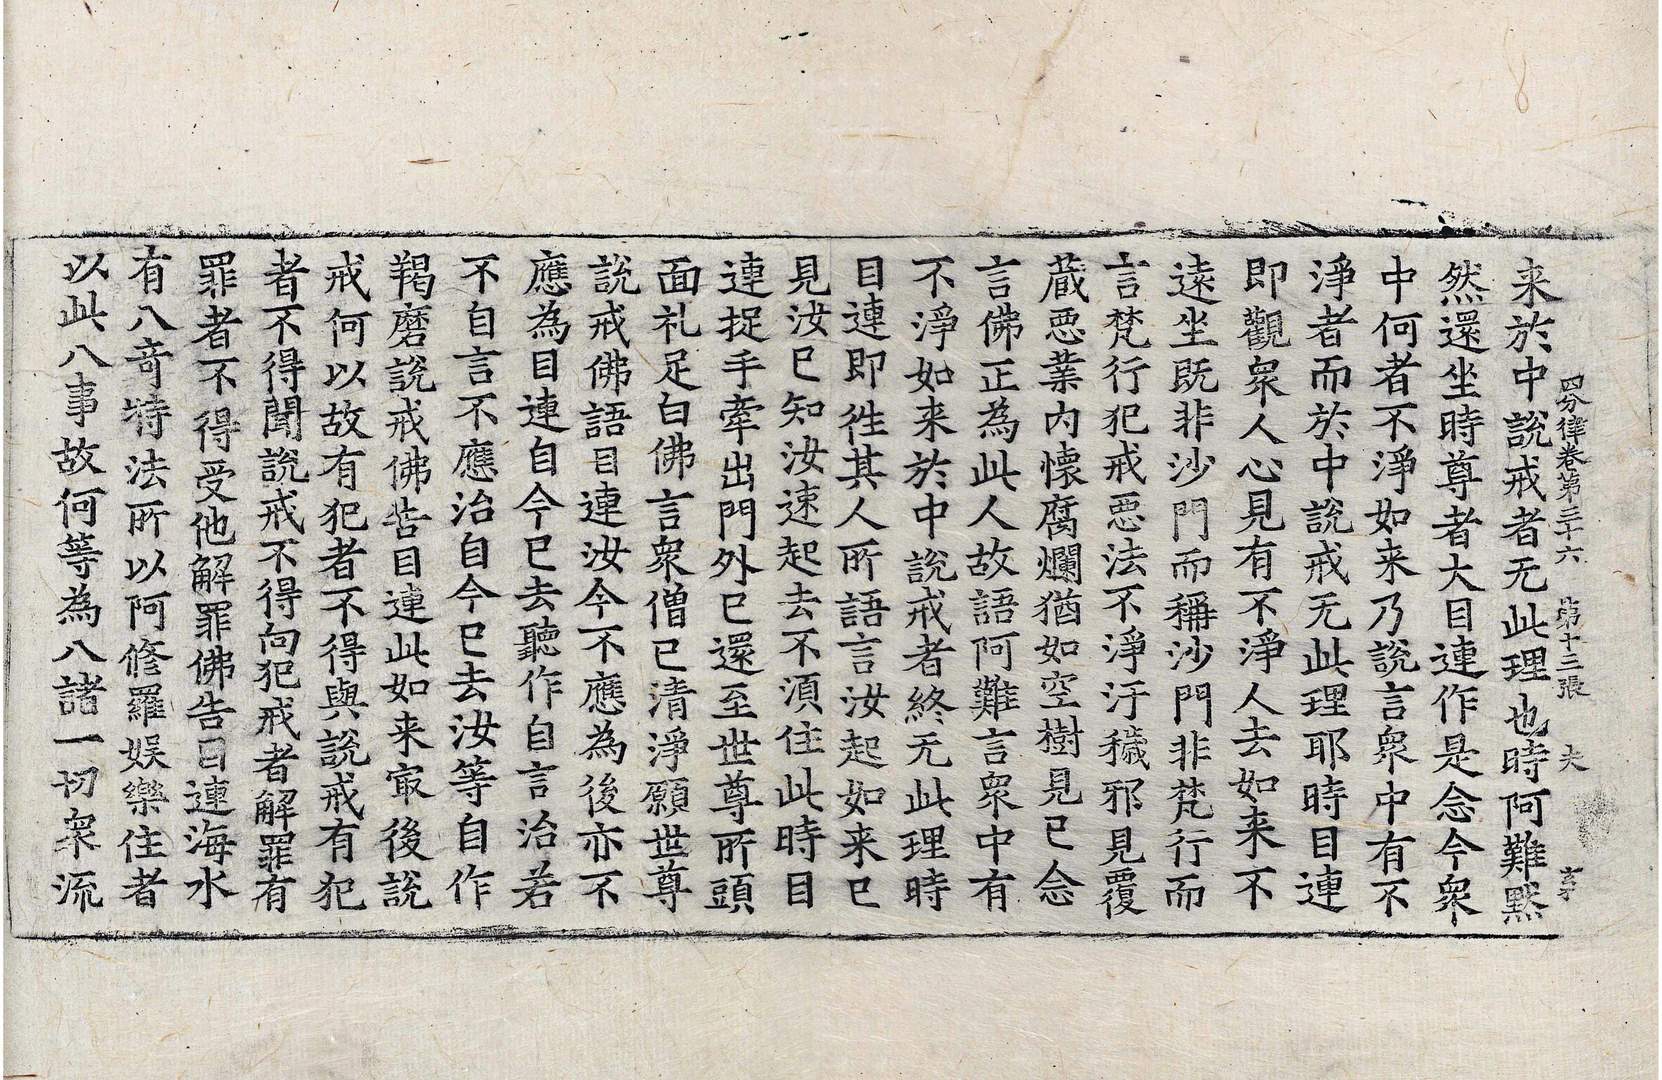 四分律卷第三十六　第十三張　夫
来於中説戒者无此理也時阿難黙
然還坐時尊者大目連作是念今衆
中何者不淨如来乃説言衆中有不
淨者而於中説戒无此理耶時目連
即觀衆人心見有不淨人去如来不
遠坐既非沙門而稱沙門非梵行而
言梵行犯戒惡法不淨汙穢邪見覆
蔵惡業内懐腐爛猶如空樹見已念
言佛正為此人故語阿難言衆中有
不淨如来於中説戒者終无此理時
目連即徃其人所語言汝起如来已
見汝已知汝速起去不湏住此時目
連捉手牽出門外已還至世尊所頭
面礼足白佛言衆僧已清淨願世尊
説戒佛語目連汝今不應為後亦不
應為目連自今已去聽作自言治若
不自言不應治自今已去汝等自作
羯磨説戒佛告目連此如来㝡後説
戒何以故有犯者不得與説戒有犯
者不得聞説戒不得向犯戒者解罪有
罪者不得受他解罪佛告目連海水
有八奇特法所以阿修羅娯樂住者
以此八事故何等為八諸一切衆流